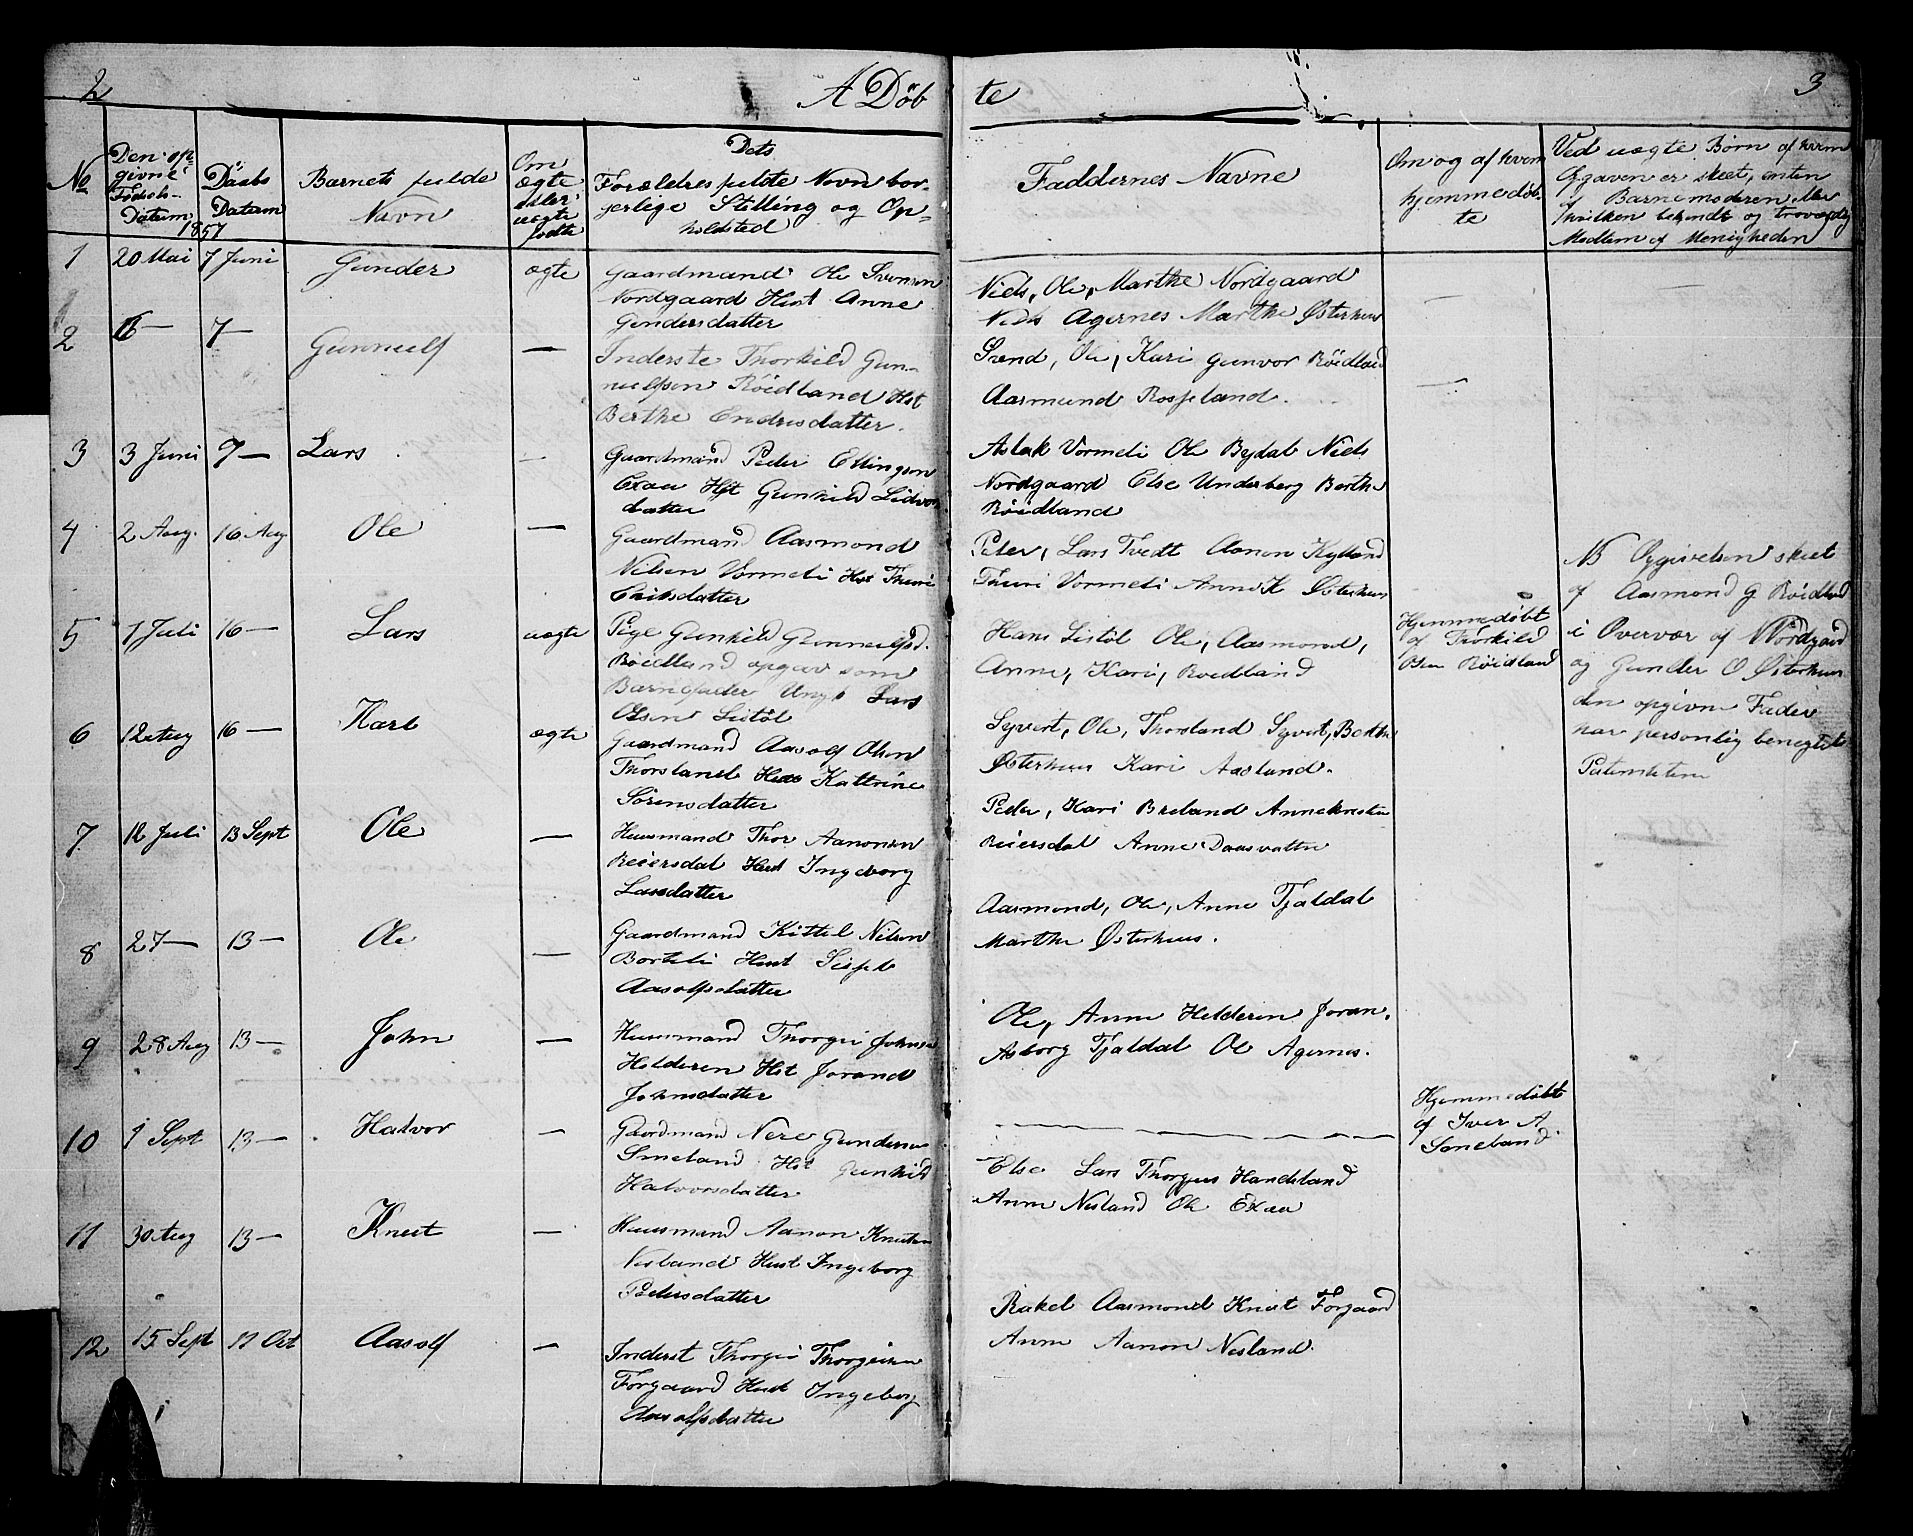 2
A Döb
te
3
No
Den opgivne Fødsels-Datum
Daabs Datum
1857
Barnets fulde Navn
Om ægte eller uægte fødte
Dets Forældres fulde Navn borgerlige Stilling og Opholdsted
Faddernes Navne
Om og af hvem hjemmedöbte
Ved uægte Børn af hvem Opgaven er skeet, enten af Barnemoderen eller hvilken bekjendt og troværdig Medlem af Menigheden
1 20 Mai 7 Juni Gunder ægte Gaardmand Ole Svensen
Nordgaard Hust Anne
Gundersdatter
Niels, Ole, Marthe Nordgaard
Niels Agernes Marthe Østerhuus
2 16 — 7 — Gunnulf — Inderste Thorkild Gun-
nulfsen Röidland Hst
Berthe Endresdatter.
Svend, Ole, Kari Gunvor Röidland
Aasmund Rosseland.
3 3 Juni 7 — Lars — Gaardmand Peder Ellingsen
Exaa Hst Gunhild Lidvors
datter
Aslak Vormeli Ole Bydal Niels
Nordgaard Else Underberg Berthe
Röidland
4 2 Aug. 16 Aug Ole — Gaardmand Aasmond
Nilsen Vormeli Hst Thuri
Eriksdatter
Peter, Lars Tvedt Aanon Kylland
Thuri Vormeli Anne K Østerhuus
5 7 Juli 16 — Lars uægte Pige Gunhild Gunnulfsd.
Röidland opgav som
Barnefader Ungk Lars
Olsen Listöl
Hans Listöl Ole, Aasmond,
Anne, Kari, Roedland
Hjemmedöbt
af Thorkild
Röidland
NB Opgivelsen skeet
af Aasmond G Röidland
i Overvær af N Nordgaard
og Gunder O Østerhuus
den opgivne Fader
har personlig benegtet
Paterniteten
6 12 Aug 16 — Karl ægte Gaardmand Aasolf Olsen
Thorsland Hust Kathrine
Sörensdatter
Syvert, Ole, Thorsland Syvert, Berthe
Østerhuus Kari Aasland.
7. 12 Juli 13 Sept Ole — Huusmand Thor Aanonsen
Reiersdal Hust Ingeborg
Larsdatter
Peder, Kari Breland Annekirsten
Reiersdal Anne Daasvatten
8 27 — 13 — Ole — Gaardmand Kittel Nilsen
Borteli Hust Sisjel
Aasolfsdatter
Aasmond, Ole, Anne Tjaldal
Marthe Østerhuus.
9 28 Aug 13 — John — Huusmand Thorgei Johnsen
Holderen Hst Jorand
Johnsdatter
Ole, Anne Holderen Joran,
Asborg Tjaldal Ole Agernes.
10 1 Sept 13 — Halvor — Gaardmand Nere Gundersen
Smeland Hst Gunhild
Halvorsdatter
Hjemmedöbt
af Iver A
Smeland.
11 30 Aug 13 — Knut — Huusmand Aanon Knutsen
Nesland Hust Ingeborg
Pedersdatter
Else Lars Thorgus Handeland
Anne Nesland Ole Exaa
12 15 Sept 11 Oct Aasolf — Inderst Thorgei Thorgeirsen
Forgaard Hust Ingeborg
Aasolfsdatter
Rakel Aasmond Knut Forgaard
Anne Aanon Nesland.